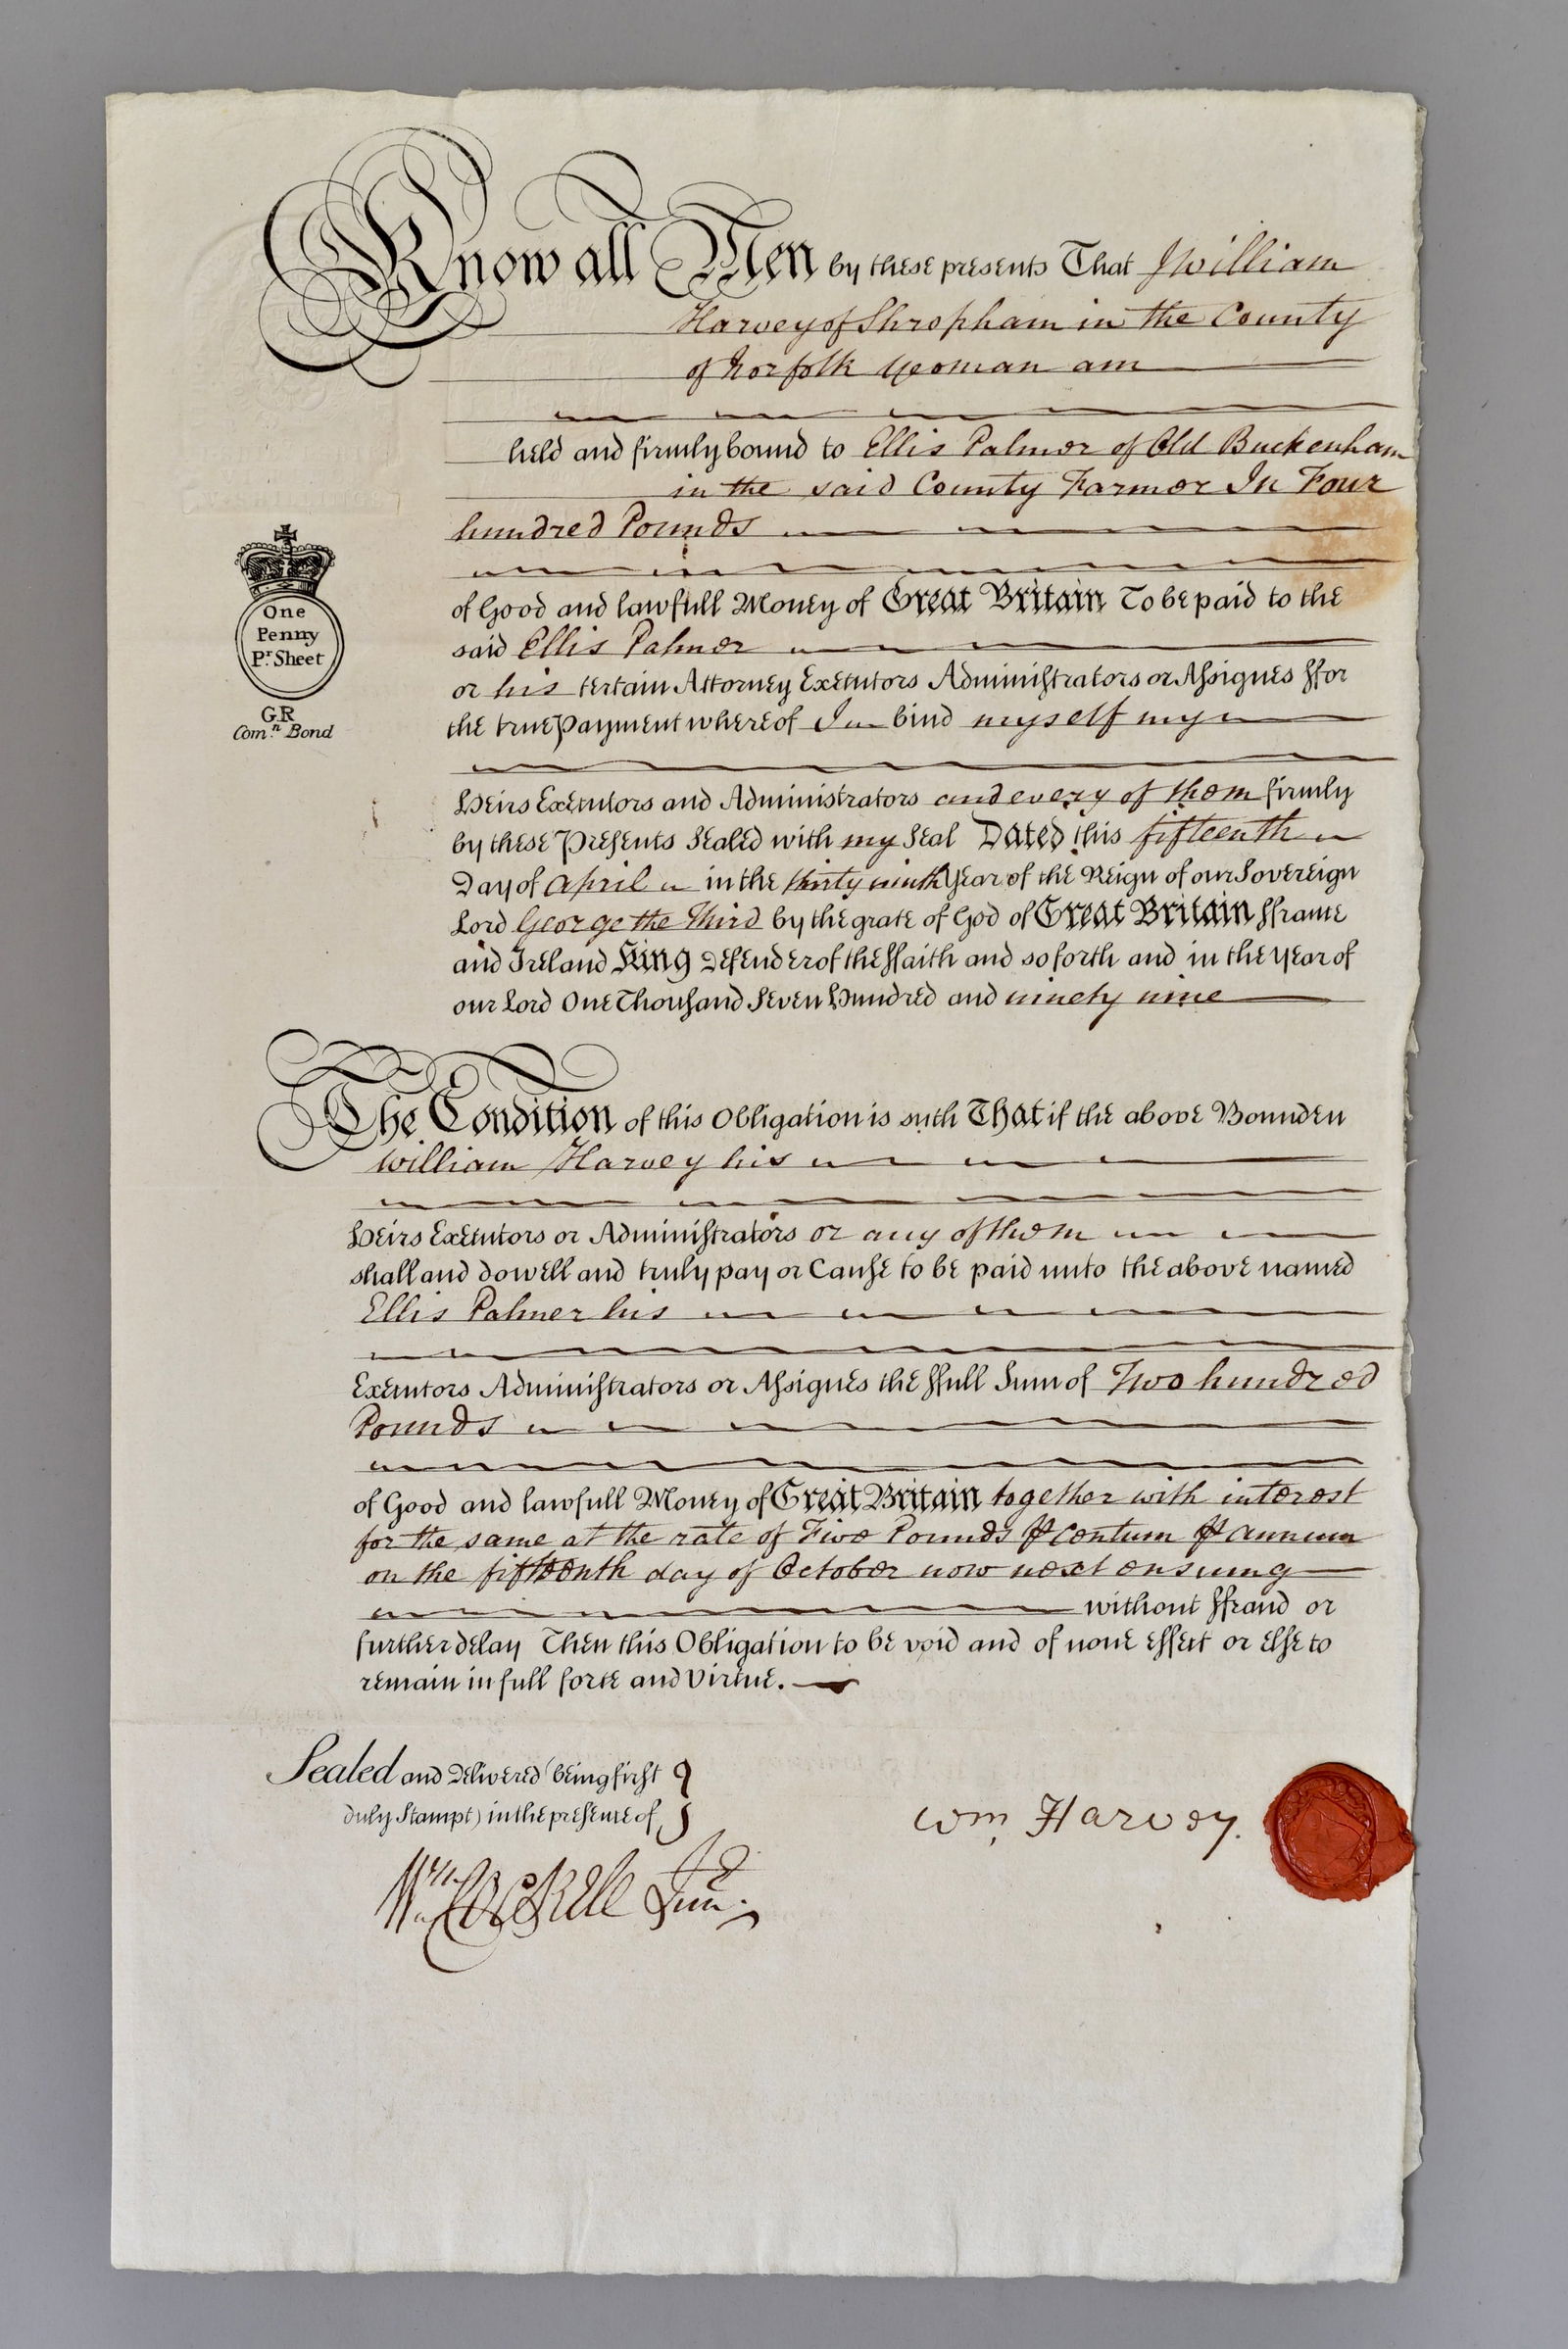 Know all Men by these presents That I William
Harvey of Shropham in the County
of Norfolk Yeoman am
held and firmly bound to Ellis Palmer of Old Buckenham
in the said County Farmer In Four
hundred Pounds
of Good and lawfull Money of Great Britain To be paid to the
said Ellis Palmer
or his certain Attorney Executors Administrators or Assignes ffor
the true Payment whereof I bind myself my
Heirs Executors and Administrators and every of them firmly
by these Presents Sealed with my Seal Dated this fifteenth
Day of April in the thirty ninth Year of the Reign of our Sovereign
Lord George the Third by the grace of God of Great Britain ffrance
and Ireland King Defender of the ffaith and so forth and in the Year of
our Lord One Thousand Seven Hundred and ninety nine
One
Penny
Pr. Sheet
G.R
Comn. Bond
The Condition of this Obligation is such That if the above Bounden
William Harvey his
Heirs Executors or Administrators or any of them
shall and do well and truly pay or Cause to be paid unto the above named
Ellis Palmer his
Executors Administrators or Assignes the ffull Sum of Two hundred
Pounds
of Good and lawfull Money of Great Britain together with interest
for the same at the rate of Five Pounds ⅌ Centum ⅌ annum
on the fifteenth day of October now next ensuing
without ffraud or
further delay Then this Obligation to be void and of none effect or else to
remain in full force and Virtue.
Sealed and Delivered (being first
duly Stampt) in the presence of
Wm. Harvey.
Wm. Cockell Junr.